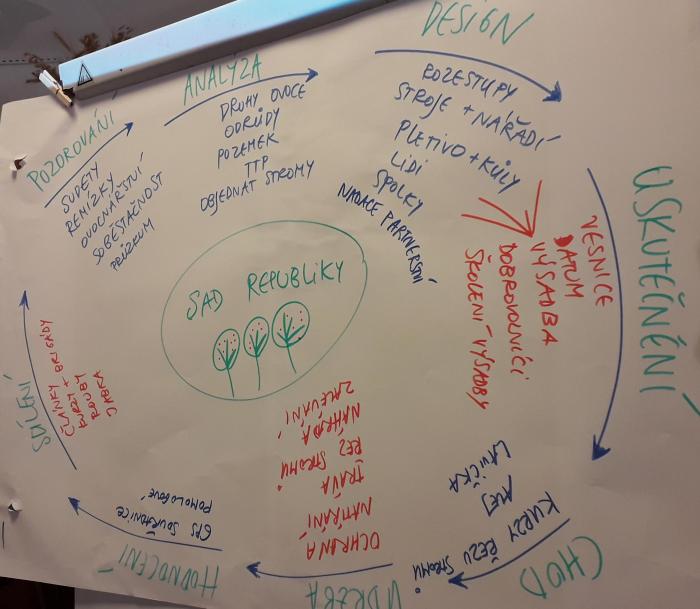 POZOROVÁNÍ
SUDETY
REMÍZKY
OVOCNÁŘSTVÍ
SOBĚSTAČNOST
PRŮZKUM
ANALÝZA
DRUHY OVOCE
ODRŮDY
POZEMEK
TTP
OBJEDNAT STROMY
DESIGN
ROZESTUPY
STROJE + NÁŘADÍ
PLETIVO + KŮLY
LIDI
SPOLKY
NADACE PARTNERSTVÍ
USKUTEČNĚNÍ
VESNICE
DATUM
VÝSADBA
DOBROVOLNÍCI
ŠKOLENÍ VÝSADBY
CHOD
KURZY ŘEZU STROMŮ
ALEJ
LAVIČKA
ÚDRŽBA
OCHRANA
NATÍRÁNÍ
TRÁVA
ŘEZ STROMŮ
NÁHRADA
ZALÉVÁNÍ
HODNOCENÍ
GPS SOUŘADNICE
POMOLOGOVÉ
SDÍLENÍ
ČLÁNKY + BRIGÁDY
KURZY +
ROUBY
JABKA
SAD REPUBLIKY